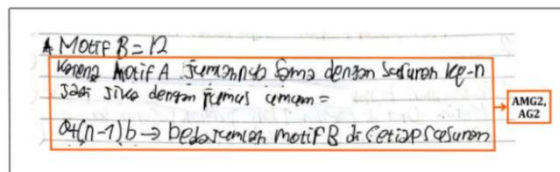 A Motif B = 12
Karena Motif A jumlahnya sama dengan susunan ke-n
Jadi jika dengan rumus umum =
a+(n-1)b → beda jumlah motif B di setiap susunan
AMG2,
AG2